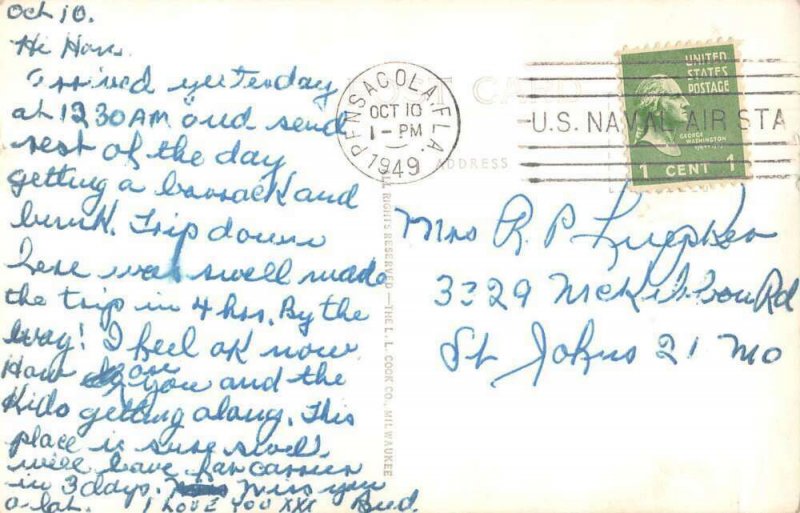 Oct 10.
Hi Hon.
Arrived yesterday
at 1230AM and send
rest of the day
getting a barrack and
bunk. Trip down
here was swell made
the trip in 4 hrs. By the
way! I feel ok now.
How are you and the
Kids getting along. This
place is sure swell.
will leave for carrier
in 3 days. Miss you
a lot. I LOVE YOU XXX Bud.
POST CARD
ADDRESS
PENSACOLA, FLA.
OCT 10
1-PM
1949
U.S. NAVAL AIR STA
UNITED
STATES
POSTAGE
GEORGE
WASHINGTON
1 CENT 1
ALL RIGHTS RESERVED—THE L. L. COOK CO., MILWAUKEE
Mrs R. P.
3329 McKibbon Rd
St Johns 21 Mo